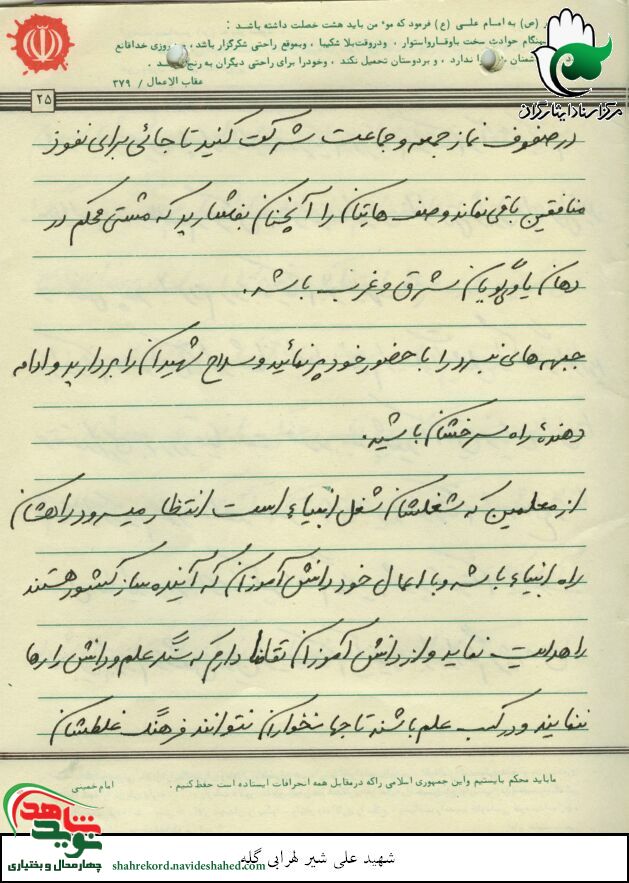 (ص) به امام علی (ع) فرمود که موٴ من باید هشت خصلت داشته باشد :
هنگام حوادث سخت باوقار و استوار ، و در وقت بلا شکیبا ، و بموقع راحتی شکرگزار باشد ، روزی خدا قانع
ندارد ، و بر دوستان تحمیل نکند ، و خود را برای راحتی دیگران به رنج
عقاب الاعمال / ۲۷۹
مرکز اسناد ایثارگران
۲۵
در صفوف نماز جمعه و جماعت شرکت کنید تا جائی برای نفوذ
منافقین باقی نماند و صف هایتان را آنچنان بفشارید که مشتی محکم در
دهان یاوه گویان شرق و غرب باشد .
جبهه های نبرد را با حضور خود پر نمائید و سلاح شهیدان را بردارید و ادامه
دهندهٔ راه سرخشان باشید .
از معلمین که شغلشان شغل انبیاء است انتظار میرود راهشان
راه انبیاء باشد و با اعمال خود دانش آموزان که آینده ساز کشور هستند
را هدایت نماید و از دانش آموزان تقاضا دارم که سنگر علم و دانش را رها
ننمایند و در کسب علم باشند تا جهانخواران نتوانند فرهنگ غلطشان
ماباید محکم بایستیم و این جمهوری اسلامی را که در مقابل همه انحرافات ایستاده است حفظ کنیم . امام خمینی
نوید شاهد
چهارمحال و بختیاری
shahrekord.navideshahed.com
شهید علی شیر لهرابی گله